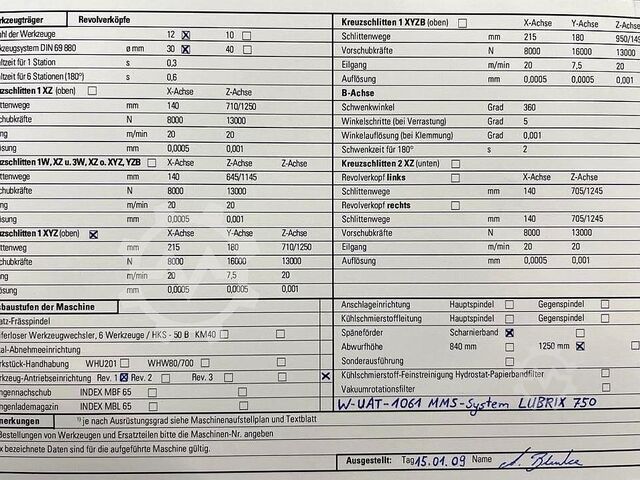 rkzeugträger Revolverköpfe
hl der Werkzeuge 12 10
kzeugsystem DIN 69 880 ø mm 30 40
altzeit für 1 Station s 0,3
altzeit für 6 Stationen (180°) s 0,6
uzschlitten 1 XZ (oben) X-Achse Z-Achse
ittenwege mm 140 710/1250
chubkräfte N 8000 13000
ng m/min 20 20
ösung mm 0,0005 0,001
uzschlitten 1W, XZ u. 3W, XZ o. XYZ, YZB X-Achse Z-Achse
ittenwege mm 140 645/1145
chubkräfte N 8000 13000
ng m/min 20 20
ösung mm 0,0005 0,001
uzschlitten 1 XYZ (oben) X-Achse Y-Achse Z-Achse
ittenweg mm 215 180 710/1250
chubkräfte N 8000 16000 13000
ng m/min 20 7,5 20
ösung mm 0,0005 0,0005 0,001
Kreuzschlitten 1 XYZB (oben) X-Achse Y-Achse Z-Achse
Schlittenwege mm 215 180 950/145
Vorschubkräfte N 8000 16000 13000
Eilgang m/min 20 7,5 20
Auflösung mm 0,0005 0,0005 0,001
B-Achse
Schwenkwinkel Grad 360
Winkelschritte (bei Verrastung) Grad 5
Winkelauflösung (bei Klemmung) Grad 0,001
Schwenkzeit für 180° s 2
Kreuzschlitten 2 XZ (unten)
Revolverkopf links X-Achse Z-Achse
Schlittenwege mm 140 705/1245
Revolverkopf rechts
Schlittenwege mm 140 705/1245
Vorschubkräfte N 8000 13000
Eilgang m/min 20 20
Auflösung mm 0,0005 0,001
sbaustufen der Maschine
satz-Frässpindel
eiferloser Werkzeugwechsler, 6 Werkzeuge / HKS - 50 B KM40
tal-Abnehmeeinrichtung
rkstück-Handhabung WHU201 WHW80/700
rkzeug-Antriebseinrichtung Rev. 1 Rev. 2 Rev. 3
ngennachschub INDEX MBF 65
ngenlademagazin INDEX MBL 65
Anschlageinrichtung Hauptspindel Gegenspindel
Kühlschmierstoffleitung Hauptspindel Gegenspindel
Späneförder Scharnierband
Abwurfhöhe 840 mm 1250 mm
Sonderausführung
Kühlschmierstoff-Feinstreinigung Hydrostat-Papierbandfilter
Vakuumrotationsfilter
W-UAT-1061 MMS-System LUBRIX 750
merkungen ¹) je nach Ausrüstungsgrad siehe Maschinenaufstellplan und Textblatt
Bestellungen von Werkzeugen und Ersatzteilen bitte die Maschinen-Nr. angeben
x bezeichnete Daten sind für die aufgeführte Maschine gültig.
Ausgestellt: Tag 15.01.09 Name